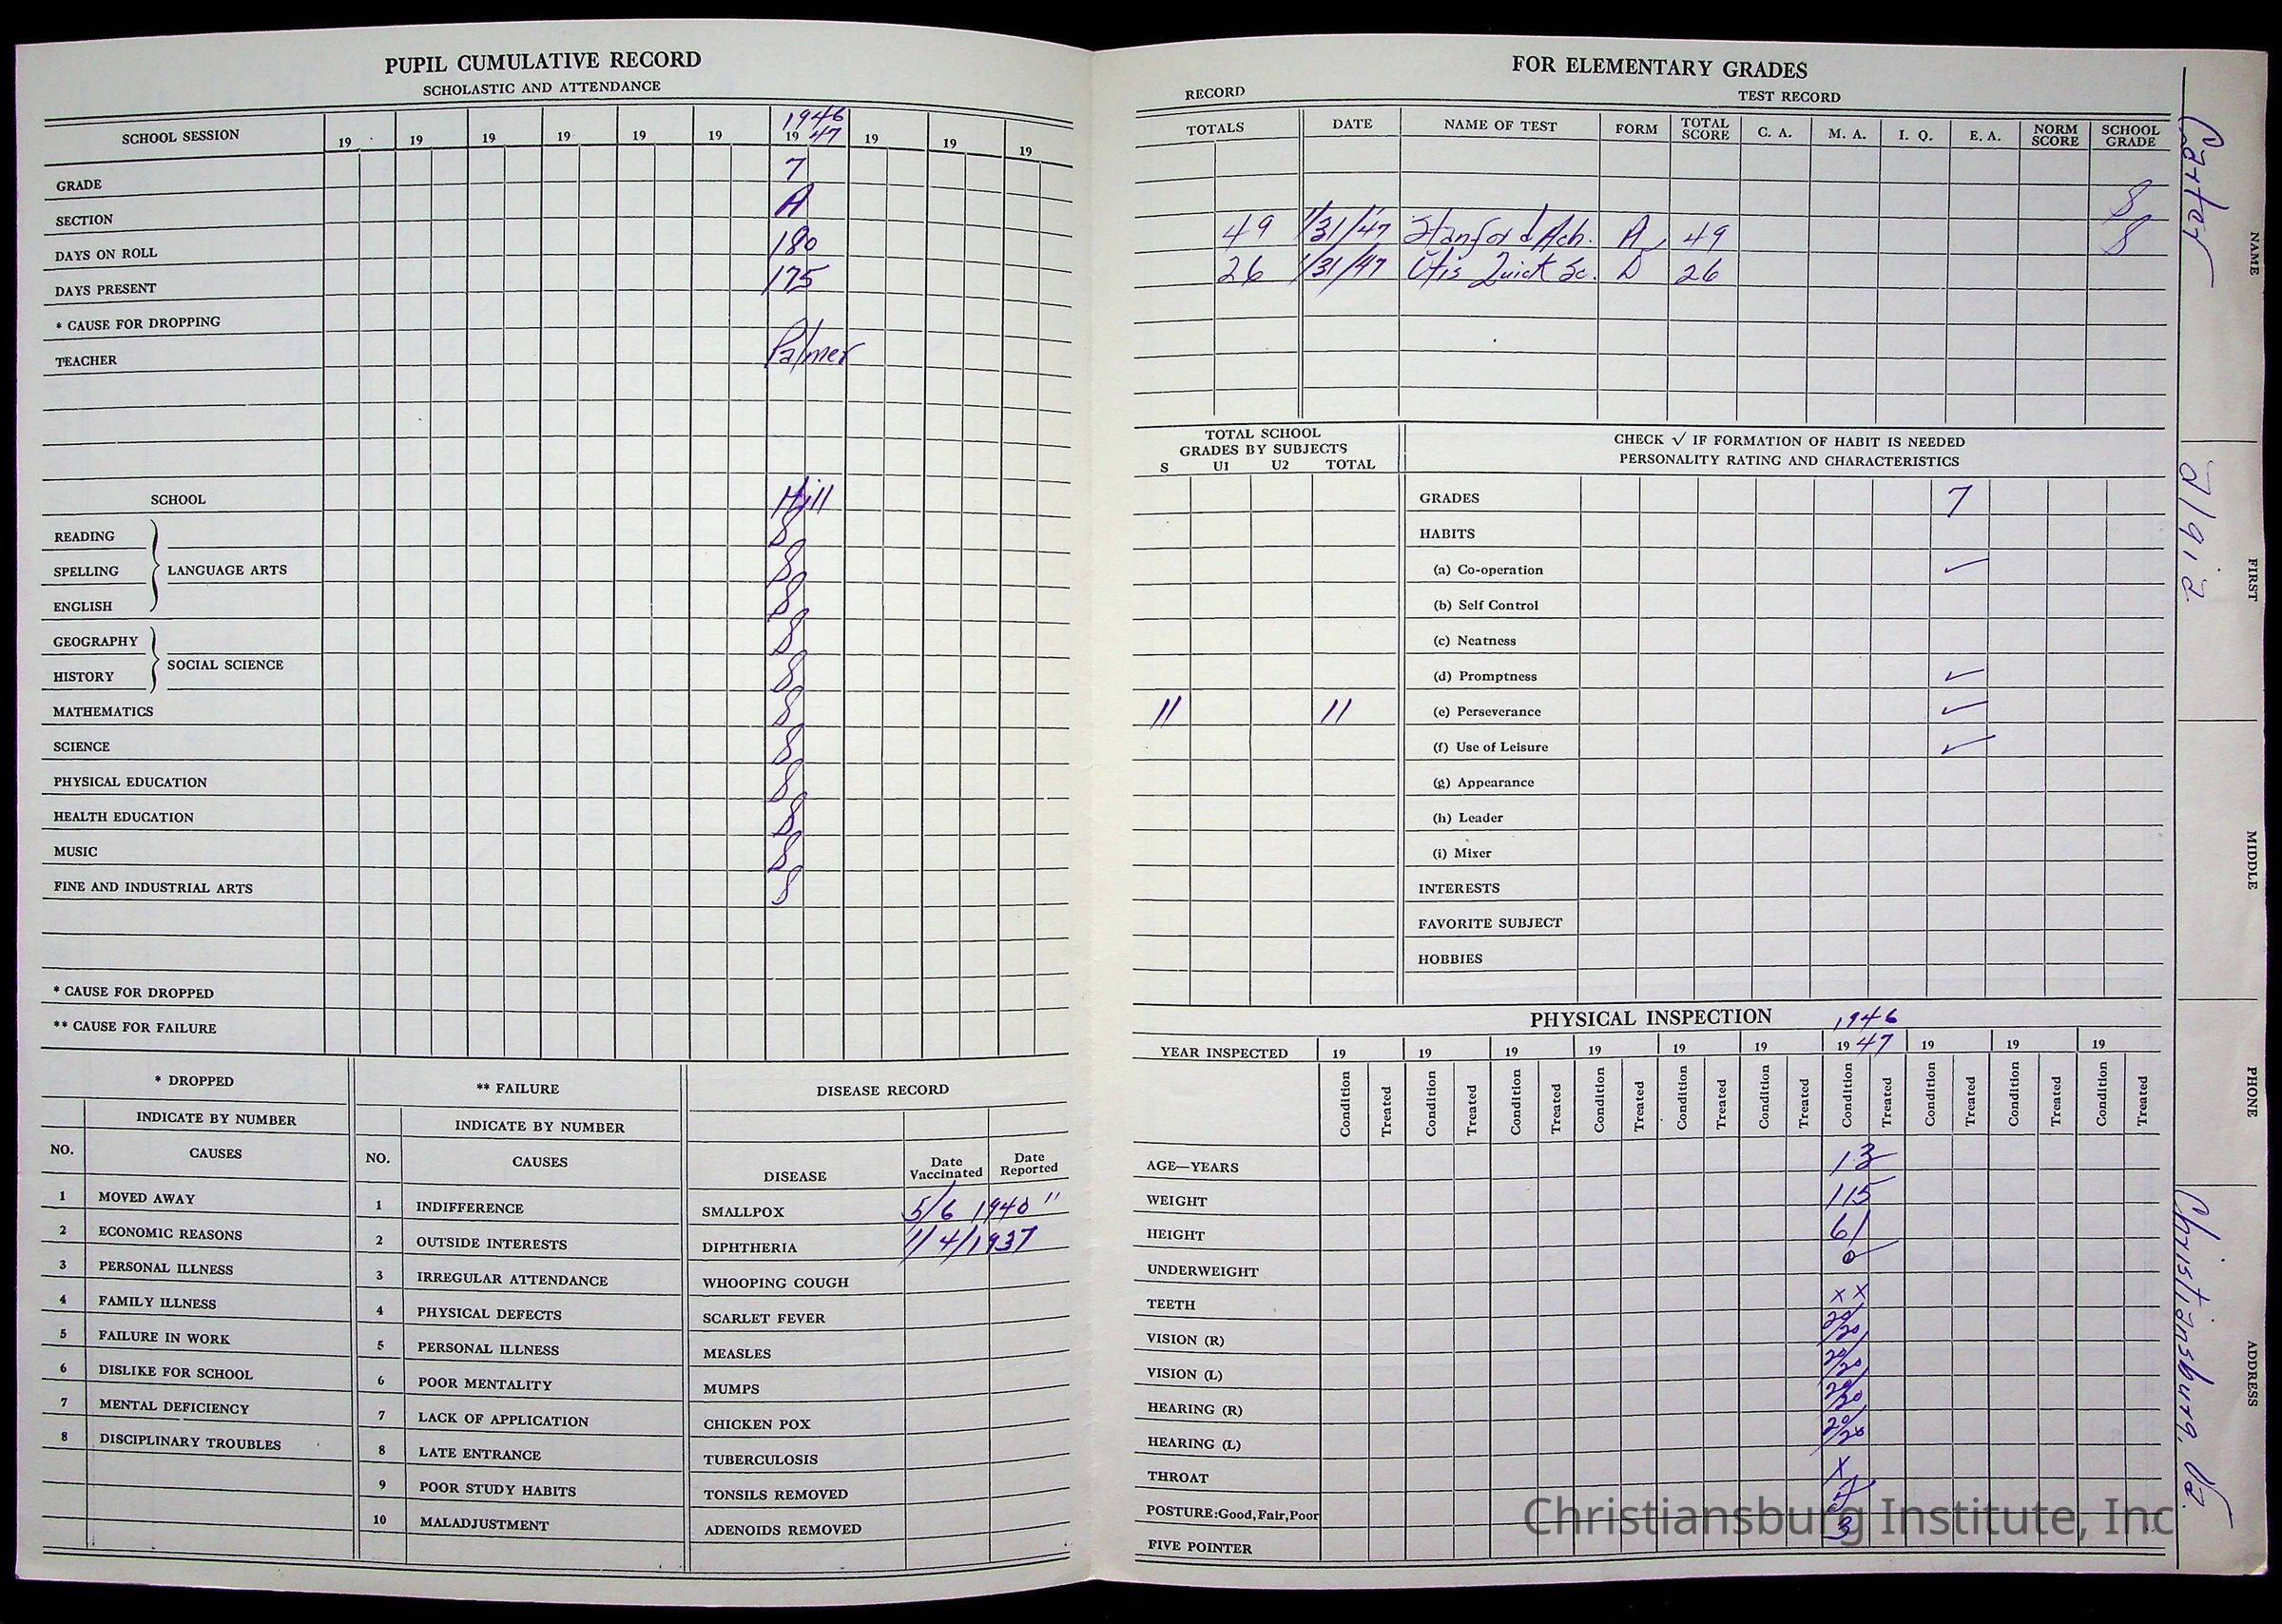 PUPIL CUMULATIVE RECORD
SCHOLASTIC AND ATTENDANCE
1946
SCHOOL SESSION 19 19 19 19 19 19 19 47 19 19 19
GRADE 7
SECTION A
DAYS ON ROLL 180
DAYS PRESENT 175
* CAUSE FOR DROPPING
TEACHER Palmer
SCHOOL Hill
READING S
SPELLING LANGUAGE ARTS S
ENGLISH S
GEOGRAPHY S
HISTORY SOCIAL SCIENCE S
MATHEMATICS S
SCIENCE S
PHYSICAL EDUCATION S
HEALTH EDUCATION S
MUSIC S
FINE AND INDUSTRIAL ARTS S
* CAUSE FOR DROPPED
** CAUSE FOR FAILURE
* DROPPED
INDICATE BY NUMBER
NO. CAUSES
1 MOVED AWAY
2 ECONOMIC REASONS
3 PERSONAL ILLNESS
4 FAMILY ILLNESS
5 FAILURE IN WORK
6 DISLIKE FOR SCHOOL
7 MENTAL DEFICIENCY
8 DISCIPLINARY TROUBLES
** FAILURE
INDICATE BY NUMBER
NO. CAUSES
1 INDIFFERENCE
2 OUTSIDE INTERESTS
3 IRREGULAR ATTENDANCE
4 PHYSICAL DEFECTS
5 PERSONAL ILLNESS
6 POOR MENTALITY
7 LACK OF APPLICATION
8 LATE ENTRANCE
9 POOR STUDY HABITS
10 MALADJUSTMENT
DISEASE RECORD
DISEASE Date Vaccinated Date Reported
SMALLPOX 5/6 1940 "
DIPHTHERIA 1/4/1937
WHOOPING COUGH
SCARLET FEVER
MEASLES
MUMPS
CHICKEN POX
TUBERCULOSIS
TONSILS REMOVED
ADENOIDS REMOVED
FOR ELEMENTARY GRADES
RECORD TEST RECORD
TOTALS DATE NAME OF TEST FORM TOTAL SCORE C. A. M. A. I. Q. E. A. NORM SCORE SCHOOL GRADE
49 1/31/47 Stanford Ach. A 49 8
26 1/31/47 Otis Quick Sc. D 26 8
TOTAL SCHOOL
GRADES BY SUBJECTS
S U1 U2 TOTAL
11 11
CHECK √ IF FORMATION OF HABIT IS NEEDED
PERSONALITY RATING AND CHARACTERISTICS
GRADES 7
HABITS
(a) Co-operation ✓
(b) Self Control
(c) Neatness
(d) Promptness ✓
(e) Perseverance ✓
(f) Use of Leisure ✓
(g) Appearance
(h) Leader
(i) Mixer
INTERESTS
FAVORITE SUBJECT
HOBBIES
PHYSICAL INSPECTION
1946
YEAR INSPECTED 19 19 19 19 19 19 19 47 19 19 19
Condition Treated Condition Treated Condition Treated Condition Treated Condition Treated Condition Treated Condition Treated Condition Treated Condition Treated Condition Treated
AGE—YEARS 13
WEIGHT 115
HEIGHT 61
UNDERWEIGHT 0
TEETH x x
VISION (R) 20/20
VISION (L) 20/20
HEARING (R) 20/20
HEARING (L) 20/20
THROAT X
POSTURE: Good, Fair, Poor
FIVE POINTER 3
NAME Carter
FIRST
MIDDLE
PHONE
ADDRESS Christiansburg, Va.
Christiansburg Institute, Inc